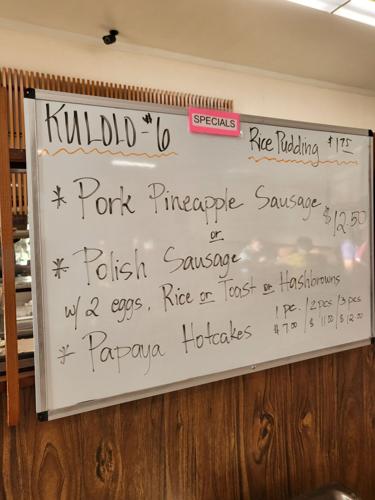 SPECIALS
KULOLO - $6
Rice Pudding $1.75
* Pork Pineapple Sausage
$12.50
or
* Polish Sausage
w/ 2 eggs, Rice or Toast or Hashbrowns
* Papaya Hotcakes
1 pc. / 2 pcs / 3 pcs
$7.00 / $11.00 / $12.00